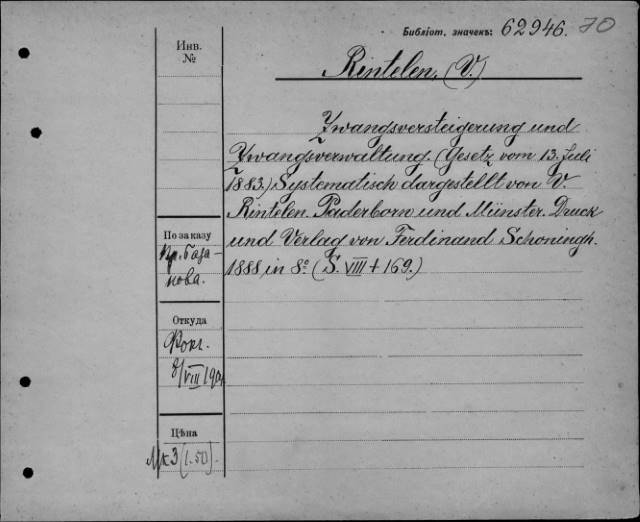 Библіот. значекъ: 62946. 70
Инв.
№
Rintelen, (V.)
Zwangsversteigerung und
Zwangsverwaltung. (Gesetz vom 13. Juli
1883.) Systematisch dargestellt von V.
Rintelen. Paderborn und Münster. Druck
und Verlag von Ferdinand Schöningh.
1888, in 8º (S. VIII + 169.)
По заказу
Пр. База-
нова.
Откуда
Фокг.
8/VIII 1904
Цѣна
Мк 3 (1.50)